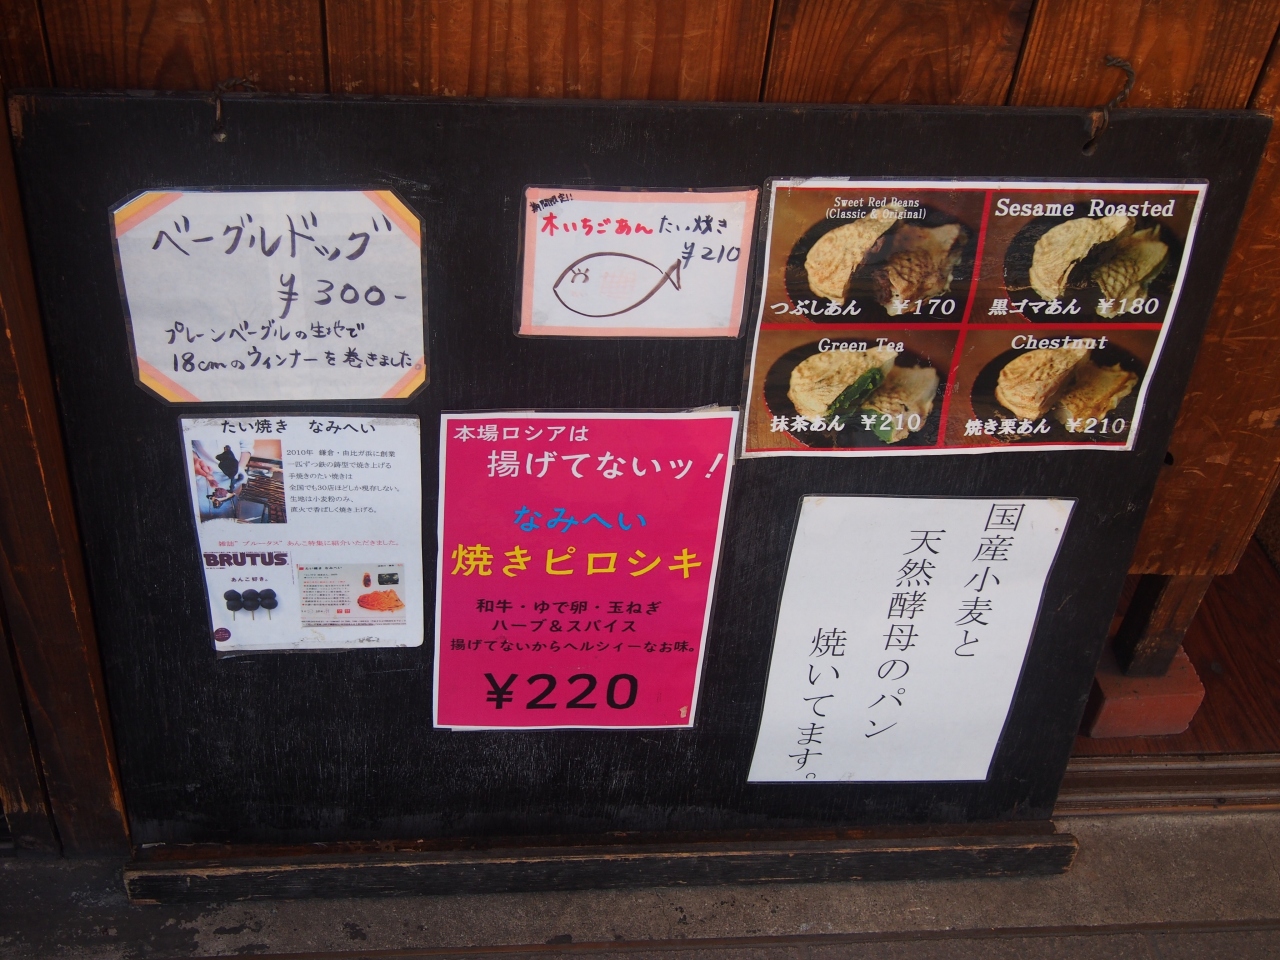 ベーグルドッグ
¥300-
プレーンベーグルの生地で
18cmのウィンナーを巻きました。
期間限定!!
木いちごあんたい焼き
¥210
Sweet Red Beans
(Classic & Original)
つぶしあん ¥170
Sesame Roasted
黒ゴマあん ¥180
Green Tea
抹茶あん ¥210
Chestnut
焼き栗あん ¥210
たい焼き なみへい
2010年 鎌倉・由比ガ浜に創業
一匹ずつ鉄の鋳型で焼き上げる
手焼きのたい焼きは
全国でも30店ほどしか現存しない。
生地は小麦粉のみ、
直火で香ばしく焼き上げる。
雑誌"ブルータス"あんこ特集に紹介いただきました。
BRUTUS
あんこ好き。
本場ロシアは
揚げてないッ!
なみへい
焼きピロシキ
和牛・ゆで卵・玉ねぎ
ハーブ&スパイス
揚げてないからヘルシィーなお味。
¥220
国産小麦と
天然酵母のパン
焼いてます。